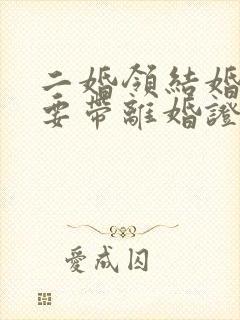 二婚領結婚
要帶離婚證
愛成囚